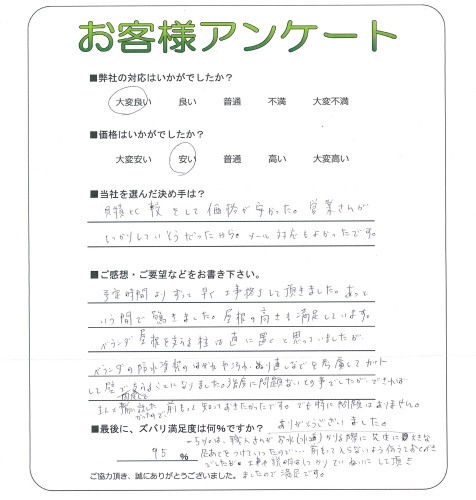 お客様アンケート
■弊社の対応はいかがでしたか？
大変良い 良い 普通 不満 大変不満
■価格はいかがでしたか？
大変安い 安い 普通 高い 大変高い
■当社を選んだ決め手は？
見積比較をして価格が安かった。営業さんが
しっかりしていそうだったから。メール対応もよかったです。
■ご感想・ご要望などをお書き下さい。
予定時間よりずっと早く工事終了して頂きました。あっと
いう間で驚きました。屋根の高さも満足しています。
ベランダ屋根を支える柱は直に置くと思っていましたが
ベランダの防水塗装のはがれや汚れ、ぬり直しなどを考慮してカット
して壁で支えることになりました。強度に問題ないとの事でしたが、できれば
前もって知っておきたかったです。でも特に問題はありません。
ありがとうございました。
■最後に、ズバリ満足度は何％ですか？
95 ％
職人さんがお水(水道)かりる際に
足あとをつけていたので
でしたが。工事の説明はしっかりていねいにして頂き
ましたので満足です。
ご協力頂き、誠にありがとうございました。